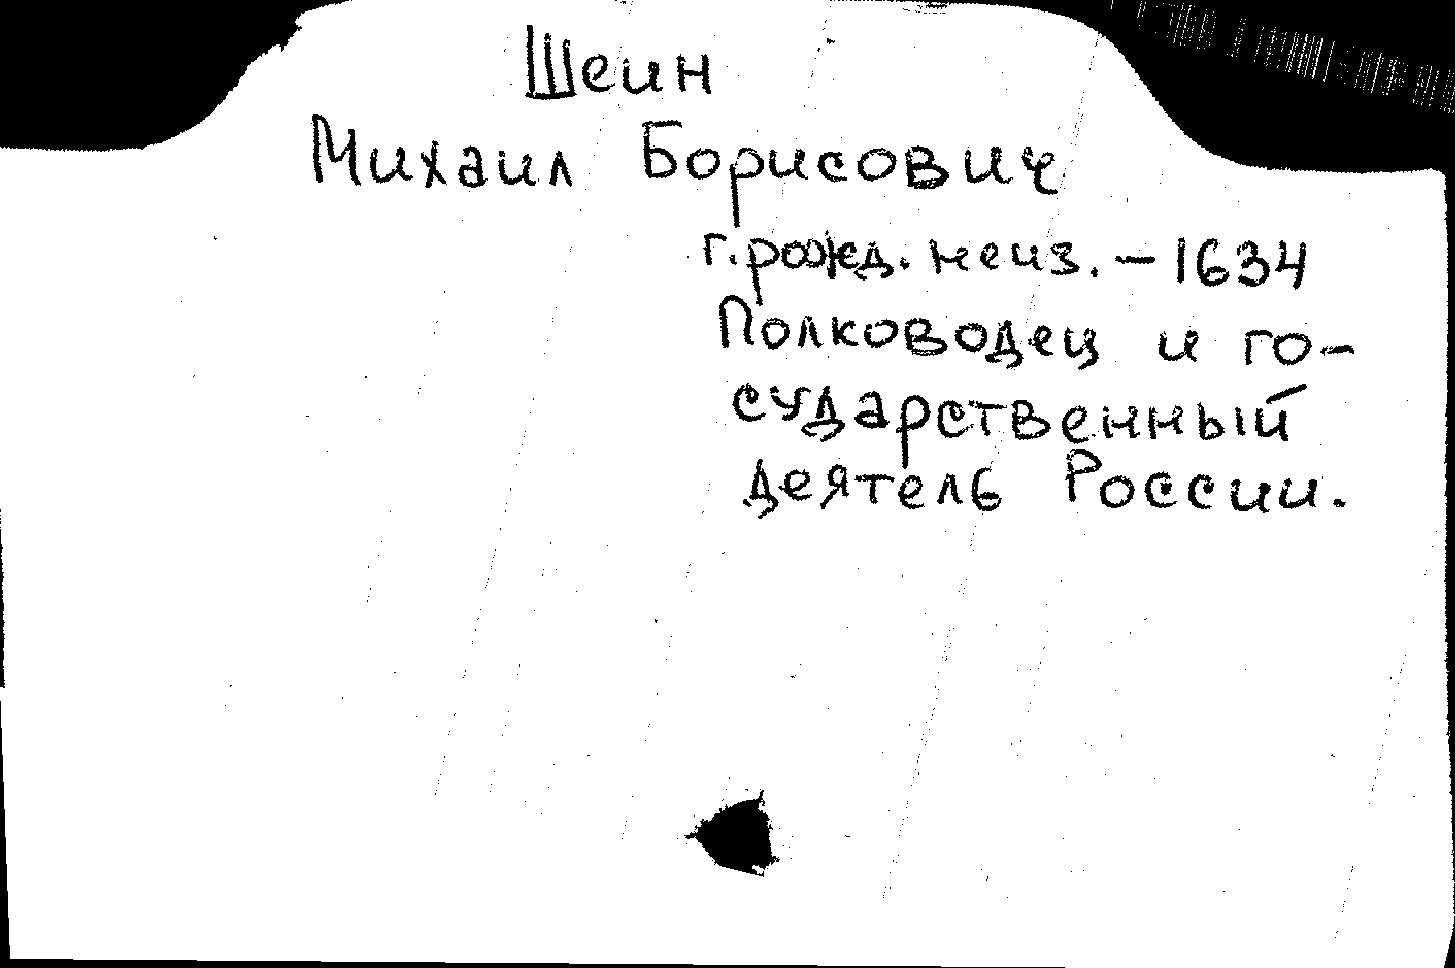 Шеин
Михаил Борисович
г. рожд. неиз. – 1634
Полководец и го-
сударственный
деятель России.